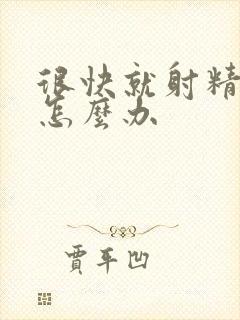 很快就射精
怎麼办
賈平凹